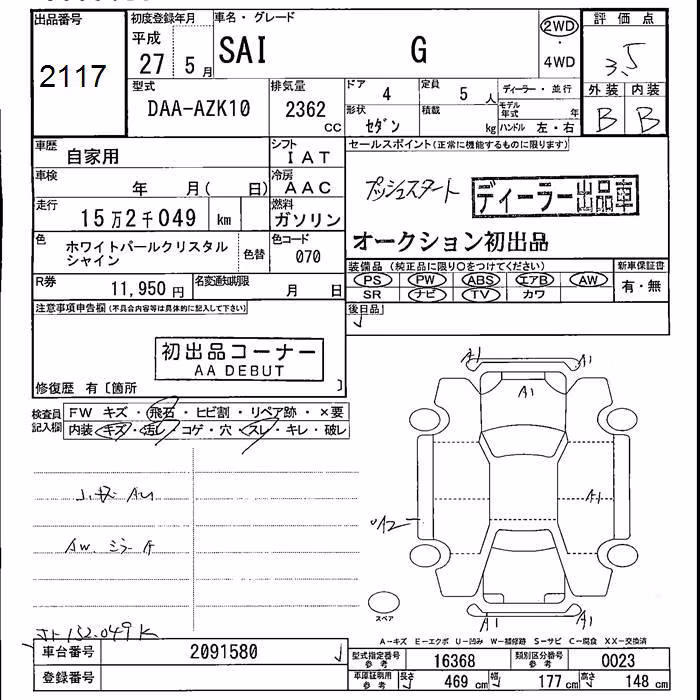 出品番号
2117
初度登録年月
平成
27 5 月
車名・グレード
SAI G
2WD
・
4WD
評価点
3.5
外装 内装
B B
型式
DAA-AZK10
排気量
2362
CC
ドア 4
定員 5 人
形状 セダン
積載 kg
ディーラー・並行
モデル年式 年
ハンドル 左・右
車歴 自家用
シフト
IAT
車検 年 月( 日)
冷房
AAC
走行 15万2千049 km
燃料
ガソリン
色 ホワイトパールクリスタル
シャイン
色替
色コード
070
R券 11,950 円
名変通知期限 月 日
セールスポイント(正常に機能するものに限ります)
プッシュスタート
ディーラー出品車
オークション初出品
装備品 (純正品に限り○をつけてください)
PS PW ABS エアB AW
SR ナビ TV カワ
新車保証書
有・無
後日品
注意事項申告欄(不具合内容等は具体的に記入して下さい)
初出品コーナー
AA DEBUT
修復歴 有〔箇所 〕
検査員
記入欄
FW キズ・飛石・ヒビ割・リペア跡・×要
内装 キズ・汚レ・コゲ・穴・スレ・キレ・破レ
AW. ミラーキ
152.049K
A1 A1
A1
A1
A2
A1 A1
スペア
A-キズ E-エクボ U-凹み W-補修跡 S-サビ C-腐食 XX-交換済
車台番号 2091580
登録番号
型式指定番号
参考
16368
類別区分番号
参考
0023
車庫証明用
参考
長さ 469 cm 幅 177 cm 高さ 148 cm